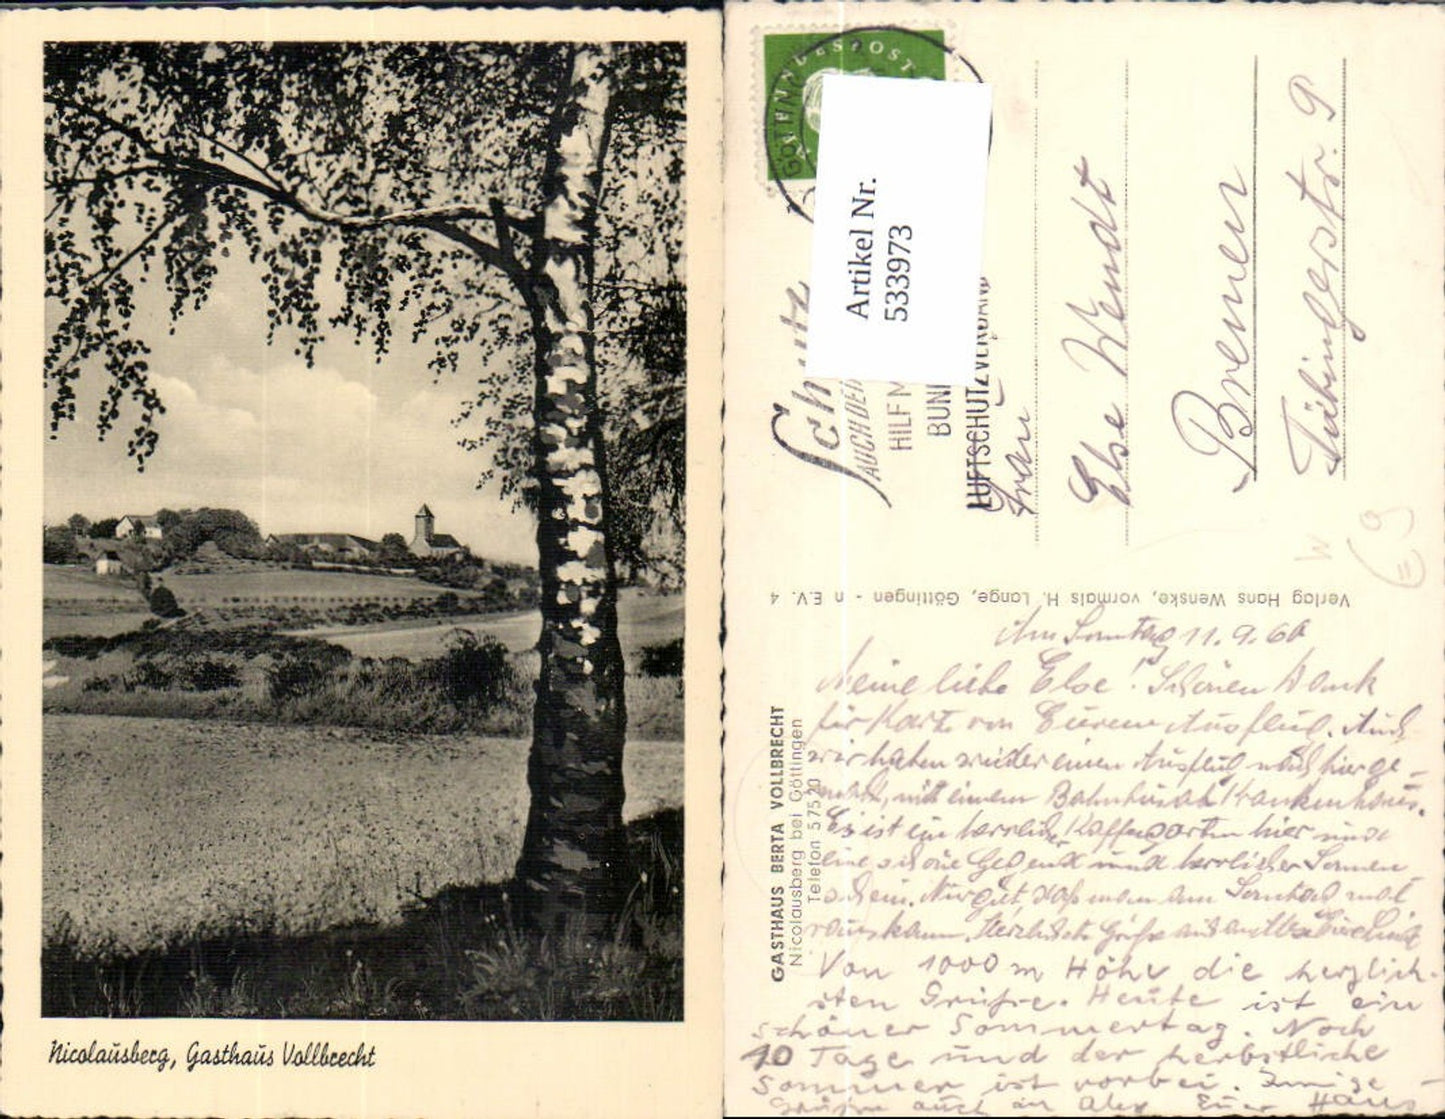 Nicolausberg, Gasthaus Vollbrecht
GÖTTINGEN
DEUTSCHE BUNDESPOST
Artikel Nr.
533973
AUCH DEIN
HILF M
BUN
LUFTSCHUTZVERBAND
Frau
Else Wendt
Bremen
Tübingerstr. 9
Verlag Hans Wenske, vormals H. Lange, Göttingen - n E.V. 4
GASTHAUS BERTA VOLLBRECHT
Nicolausberg bei Göttingen
Telefon 57520
Am Sonntag 11.9.60
Meine liebe Else! Schönen Dank
für Karte von Eurem Ausflug. Auch
wir haben wieder einen Ausflug nach hier ge-
macht, mit einem Bahnhusab Krankenhaus.
Es ist ein herrlicher Kaffeegarten hier und
eine schöne Gegend und herrlicher Sonnen
schein. Nur gut daß man am Sonntag mal
rauskann. Herzliche Grüße
Von 1000 m Höhe die herzlich-
sten Grüße. Heute ist ein
schöner Sommertag. Noch
10 Tage und der herbstliche
Sommer ist vorbei. Innige
Grüße auch an Alex Euer Hans